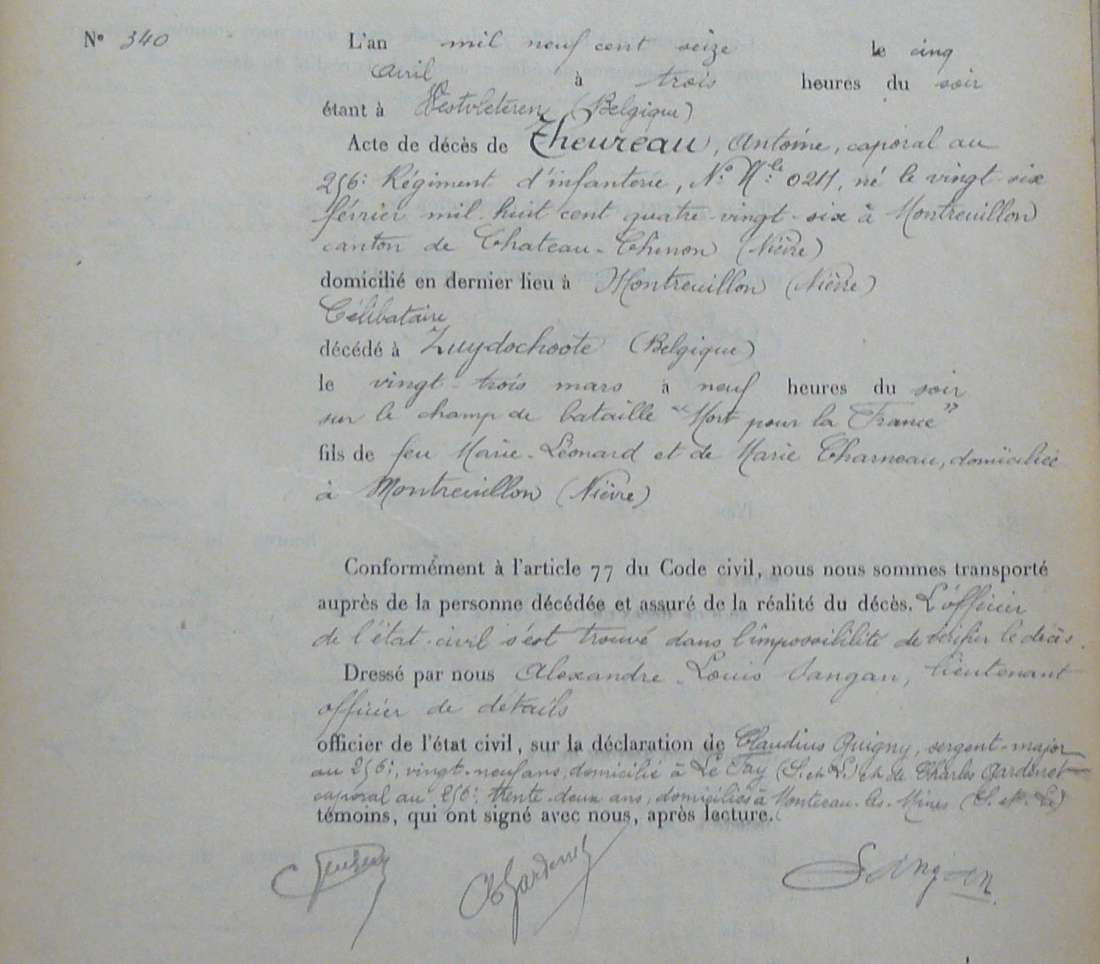 N° 340
L'an mil neuf cent seize le cinq
avril à trois heures du soir
étant à Westvleteren (Belgique)
Acte de décès de Theureau, Antoine, caporal au
256e Régiment d'infanterie, N° Mle 0211, né le vingt-six
février mil huit cent quatre-vingt-six à Montreuillon
canton de Chateau-Chinon (Nièvre)
domicilié en dernier lieu à Montreuillon (Nièvre)
Célibataire
décédé à Zuydschoote (Belgique)
le vingt-trois mars à neuf heures du soir
sur le champ de bataille "Mort pour la France"
fils de feu Marie-Léonard et de Marie Charneau, domiciliée
à Montreuillon (Nièvre)
Conformément à l'article 77 du Code civil, nous nous sommes transporté
auprès de la personne décédée et assuré de la réalité du décès. L'officier
de l'état-civil s'est trouvé dans l'impossibilité de vérifier le décès.
Dressé par nous Alexandre Louis Sangan, lieutenant
officier de détails
officier de l'état civil, sur la déclaration de Claudius Guigny, sergent-major
au 256e, vingt-neuf ans, domicilié à Le Fay (S. et L.) et de Charles Gardenet
caporal au 256e trente-deux ans, domiciliés à Montceau-les-Mines (S. et L.)
témoins, qui ont signé avec nous, après lecture.
Ch Gardenet Sangan